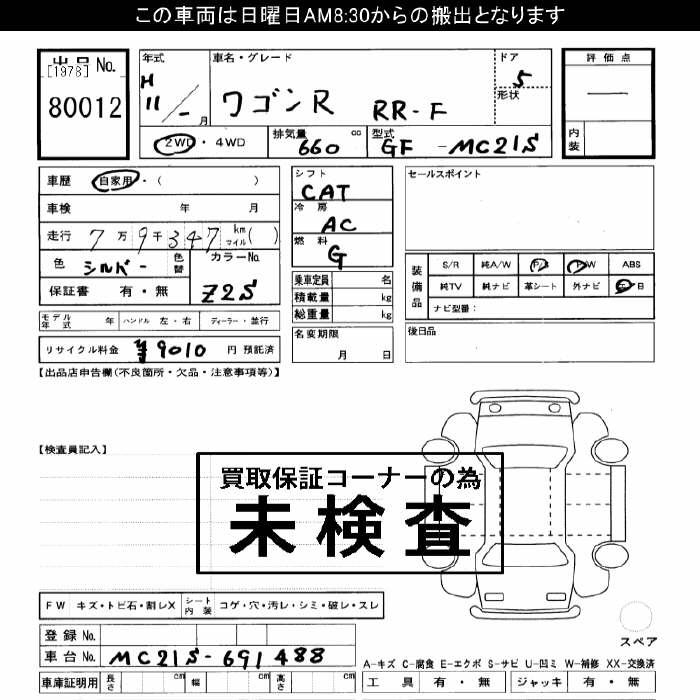 この車両は日曜日AM8:30からの搬出となります
出品 No.
[1978]
80012
年式
H
11/-月
車名・グレード
ワゴンR RR-F
ドア
5
形状
評価点
—
内装
2WD・4WD
排気量
660 cc
型式
GF - MC21S
車歴 自家用・( )
車検 年 月
走行 7万9千347 km マイル( )
色 シルバー 色替
カラーNo.
Z2S
保証書 有・無
シフト
CAT
冷房
AC
燃料
G
乗車定員 名
積載量 kg
総重量 kg
名変期限
月 日
セールスポイント
装備品
S/R 純A/W P/S P/W ABS
純TV 純ナビ 革シート 外ナビ
ナビ型番:
後日品
モデル年式 年 ハンドル 左・右 ディーラー・並行
リサイクル料金 ¥9010 円 預託済
【出品店申告欄(不良箇所・欠品・注意事項等)】
【検査員記入】
買取保証コーナーの為
未検査
FW キズ・トビ石・割レX シート内装 コゲ・穴・汚レ・シミ・破レ・スレ
登録 No.
車台 No. MC21S-691488
車庫証明用 長さ cm 幅 cm 高さ cm
スペア
A-キズ C-腐食 E-エクボ S-サビ U-凹ミ W-補修 XX-交換済
工具 有・無 ジャッキ 有・無